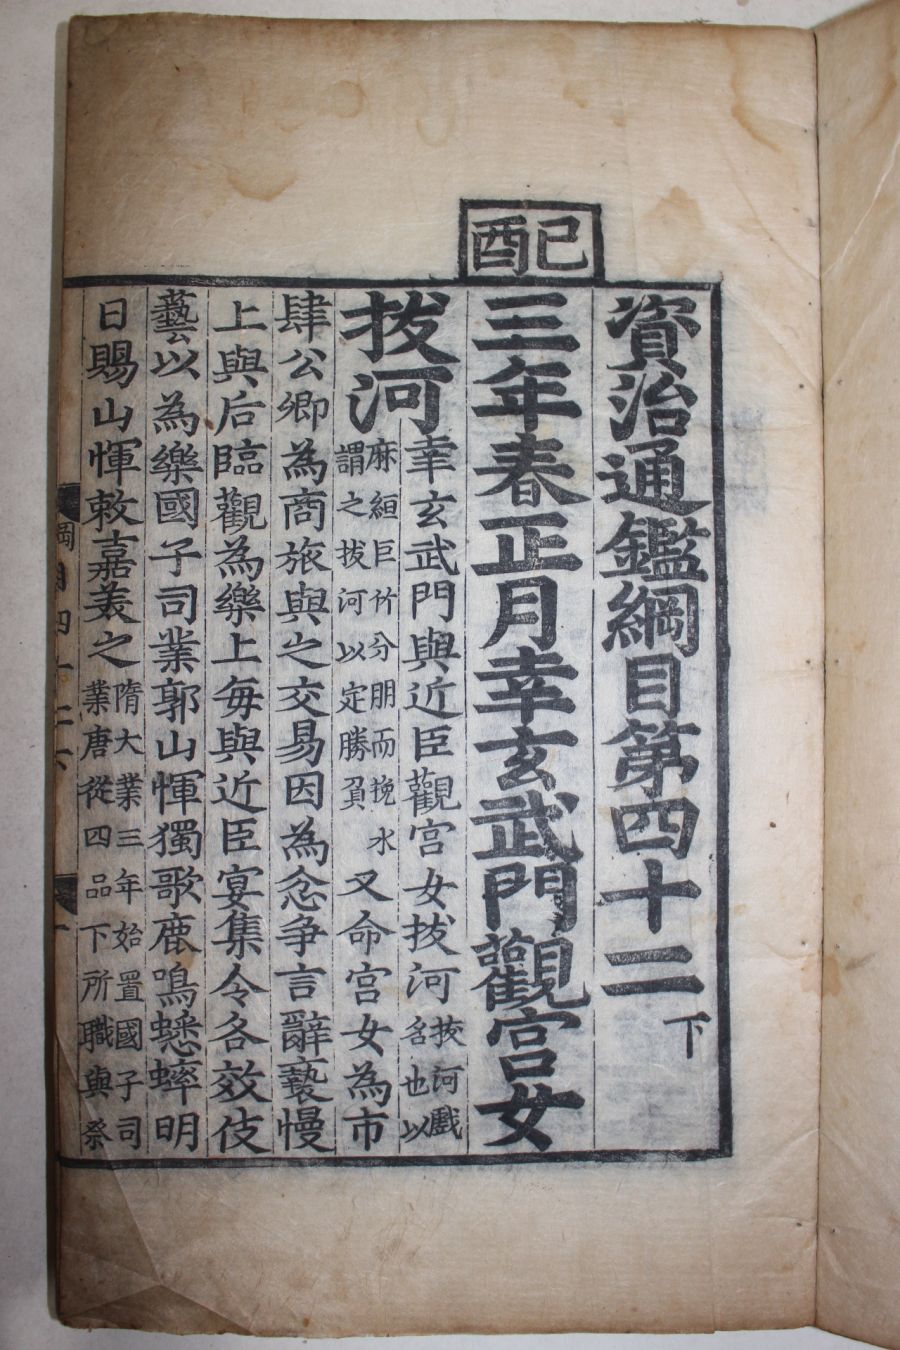 己酉
資治通鑑綱目第四十二下
三年春正月幸玄武門觀宮女
拔河
幸玄武門與近臣觀宮女拔河
拔河戲
名也以
麻絙巨竹分朋而挽水
謂之拔河以定勝負
又命宮女為市
肆公卿為商旅與之交易因為忿争言辭褻慢
上與后臨觀為樂上每與近臣宴集令各效伎
藝以為樂國子司業郭山惲獨歌鹿鳴蟋蟀明
日賜山惲敕嘉美之
隋大業三年始置國子司
業唐從四品下所職與祭